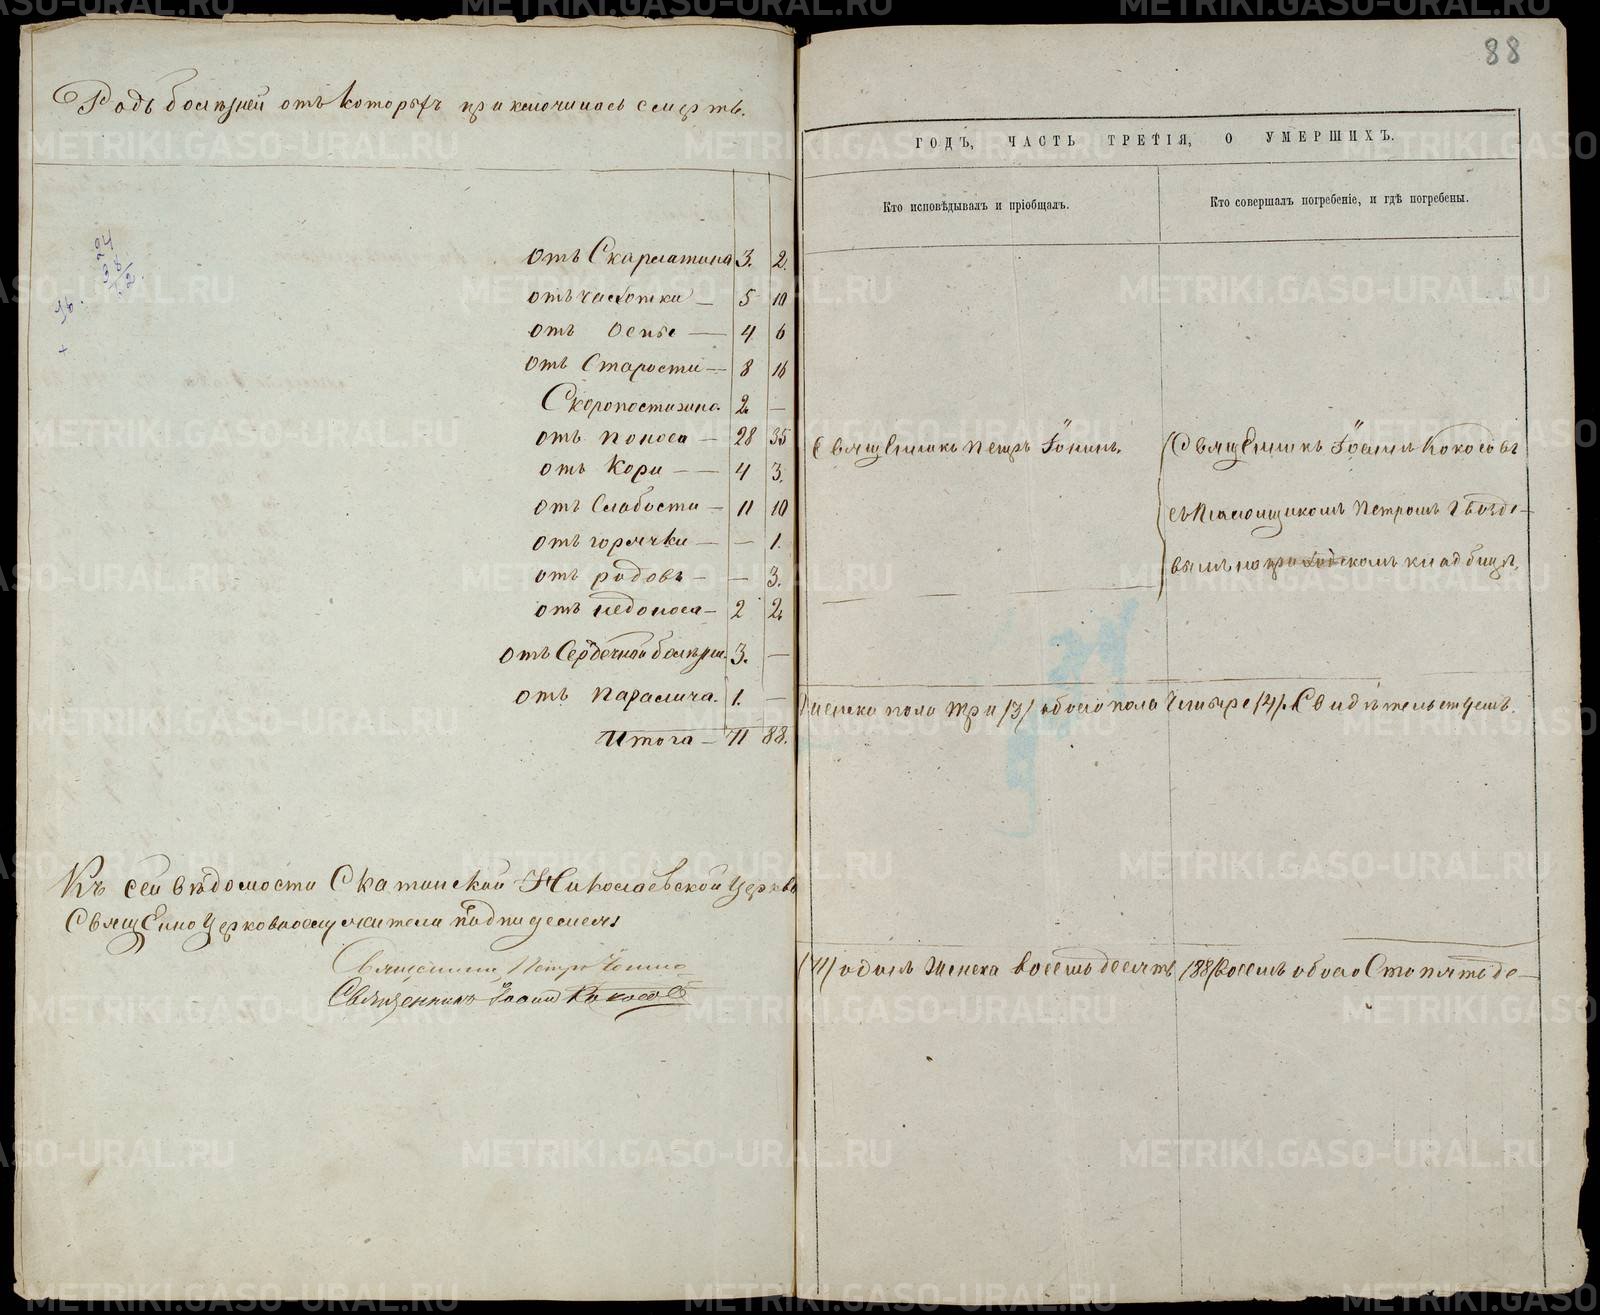 Родъ болѣзней отъ которыхъ приключилась смерть.
отъ Скарлатина 3. 2.
отъ чахотки — 5 10
отъ Оспы — 4 6
отъ Старости — 8 16
Скоропостижно. 2. —
отъ поноса — 28 35
отъ Кори — 4 3.
отъ Слабости — 11 10
отъ горячки — — 1.
отъ родовъ — — 3.
отъ недоноса — 2 2.
отъ Сердечной болѣзни. 3. —
отъ паралича. 1. —
Итого — 71 88.
Къ сей вѣдомости Скатинской Николаевской Церкви
Священно церковнослужители подписуемся
Священникъ Петръ
Священникъ Іоаннъ Кокосовъ
88
ГОДЪ, ЧАСТЬ ТРЕТІЯ, О УМЕРШИХЪ.
Кто исповѣдывалъ и пріобщалъ.
Кто совершалъ погребеніе, и гдѣ погребены.
Священникъ Петръ
Священникъ Іоаннъ Кокосовъ
съ Псаломщикомъ Петромъ
вымъ на приходскомъ кладбищѣ.
женска пола три /3/ обоего пола Четыре /4/. Свидѣтельствуемъ.
/71/ одинъ Женска восемьдесятъ /88/ восемь обоего Сто пятьде-
METRIKI.GASO-URAL.RU